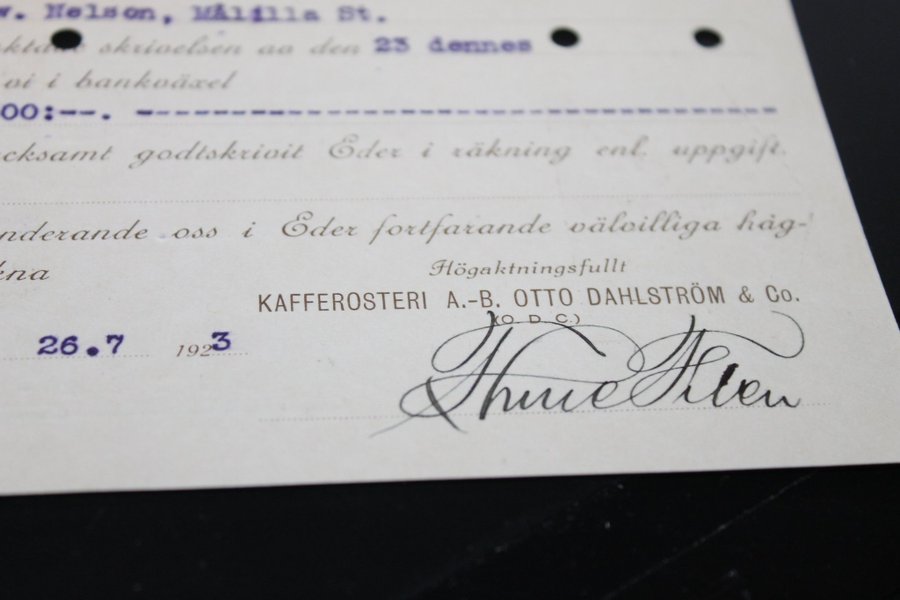 v. Nelson, Målilla St.
skrivelsen av den 23 dennes
vi i bankväxel
00:--. -----------------------------------------------
cksamt godtskrivit Eder i räkning enl. uppgift.
nderande oss i Eder fortfarande välvilliga håg-
kna
Högaktningsfullt
KAFFEROSTERI A.-B. OTTO DAHLSTRÖM & Co.
(O. D. C.)
26.7 1923
Thure